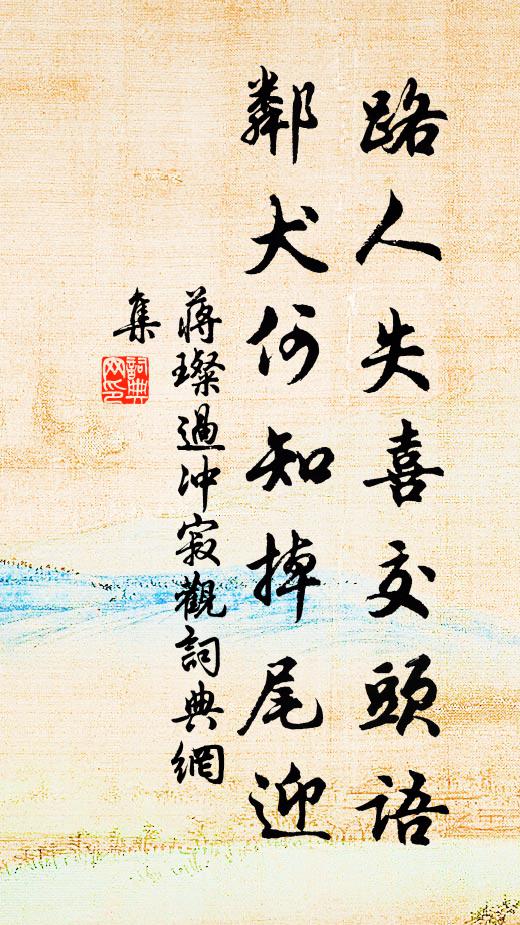 路人失喜交頭語
鄰犬何知掉尾迎
蔣璨過冲寂觀詞典網
集
詞典
網印